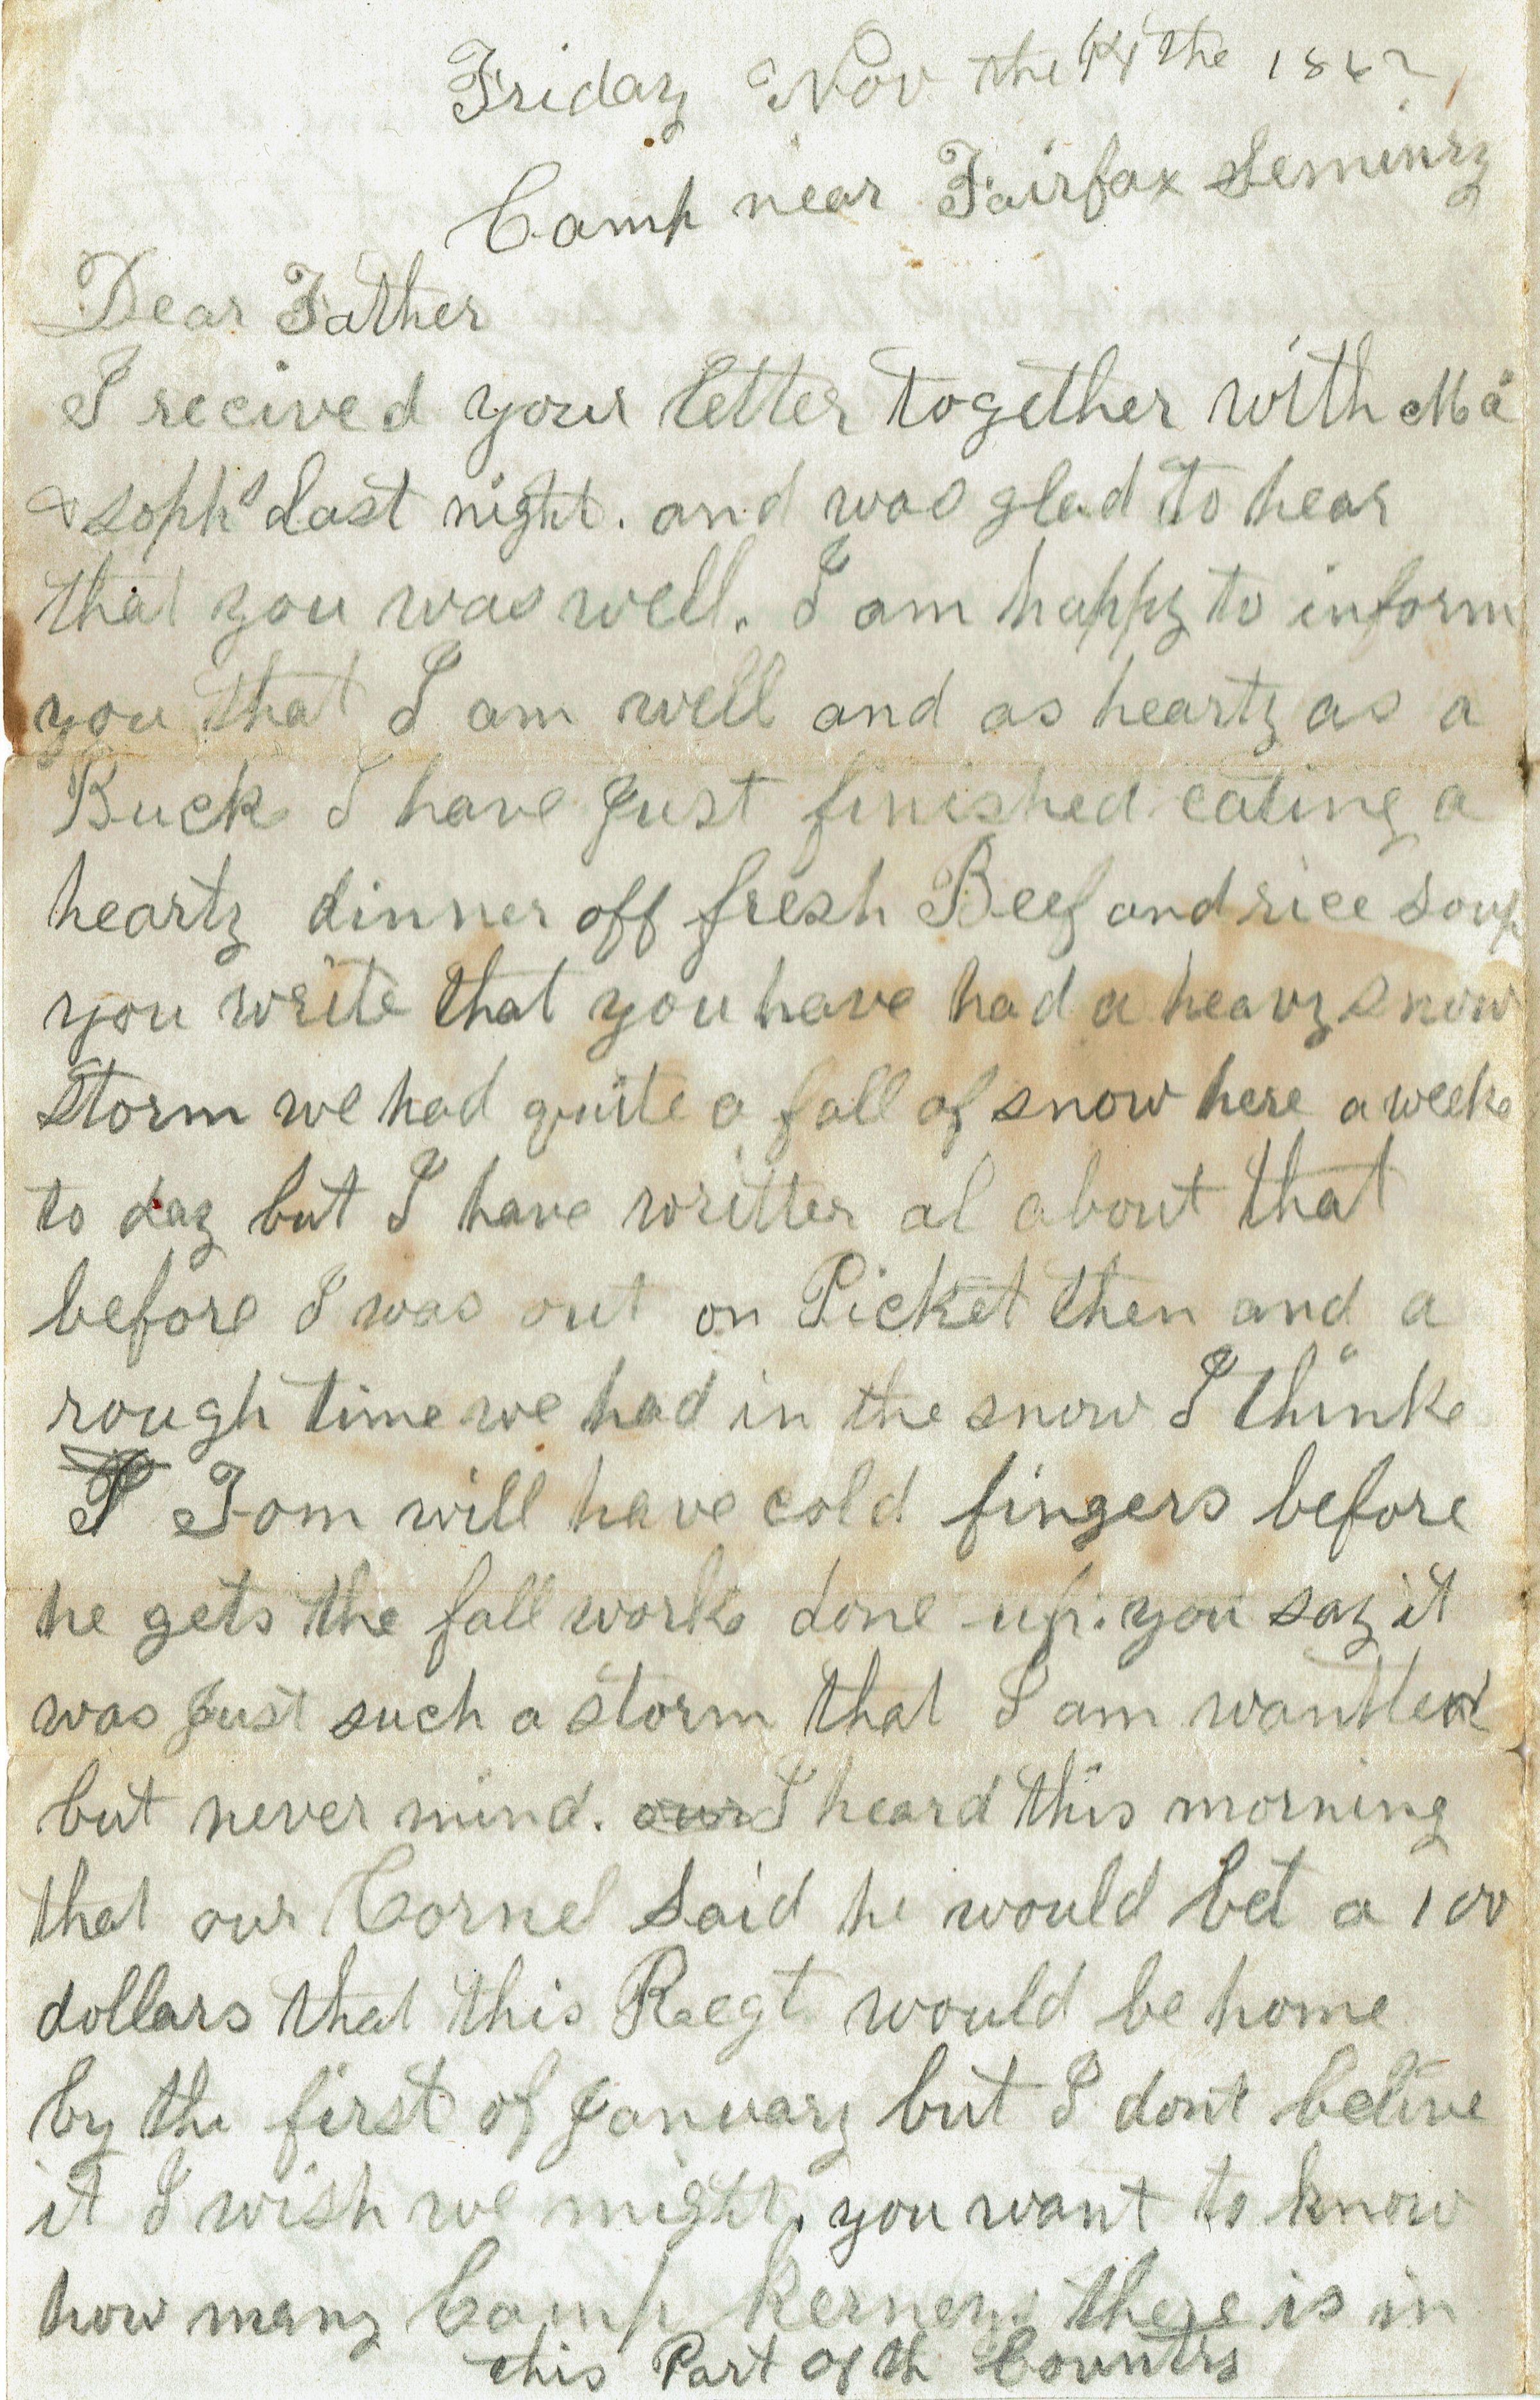 Friday Nov the 14 the 1862
Camp near Fairfax Seminry
Dear Father
I recived your letter together with Ma
& soph's Last night. and was glad to hear
that you was well. I am happy to inform
you that I am well and as hearty as a
Buck I have Just finished eating a
hearty dinner off fresh Beef and rice soup
you write that you have had a heavy snow
storm we had quite a fall of snow here a week
to day but I have writter al about that
before I was out on Picket then and a
rough time we had in the snow I think
Tom will have cold fingers before
he gets the fall work done up. you say it
was Just such a storm that I am wantted
but never mind. our I heard this morning
that our Cornel said he would bet a 100
dollars that this Regt would be home
by the first of January but I dont belive
it I wish we might. you want to know
how many Camp Kerneys there is in
this Part of th Countrs